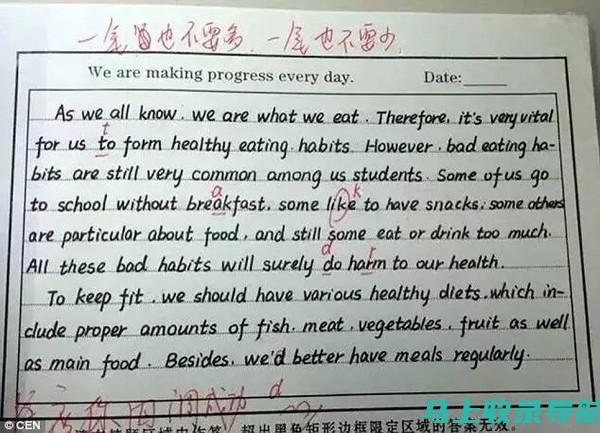 We are making progress every day. Date:
As we all know, we are what we eat. Therefore, it's very vital
for us to form healthy eating habits. However, bad eating ha-
bits are still very common among us students. Some of us go
to school without breakfast, some like to have snacks; some others
are particular about food, and still some eat or drink too much.
All these bad habits will surely do harm to our health.
To keep fit, we should have various healthy diets, which in-
clude proper amounts of fish, meat, vegetables, fruit as well
as main food. Besides, we'd better have meals regularly.
超出黑色矩形边框限定区域的答案无效。
© CEN